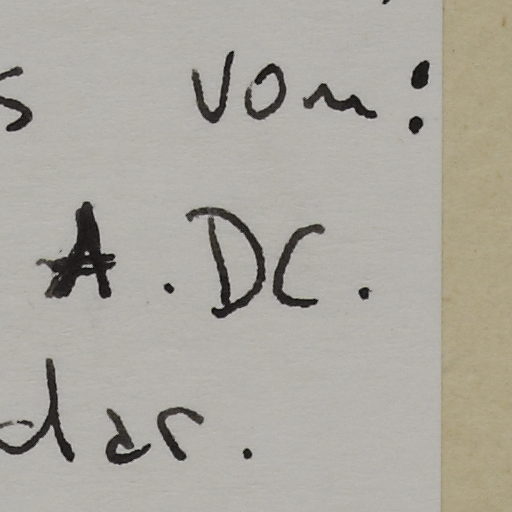 s vom:
A.DC.
dar.